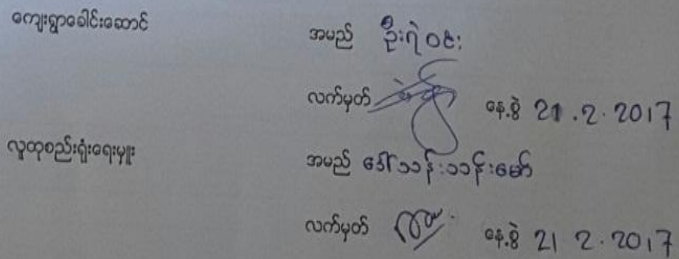 ကျေးရွာခေါင်းဆောင် အမည် ဦးရဲဝင်း
လက်မှတ် နေ့စွဲ 21.2.2017
လူထုစည်းရုံးရေးမှူး အမည် ဒေါ်သန်းသန်းမော်
လက်မှတ် နေ့စွဲ 21 2.2017